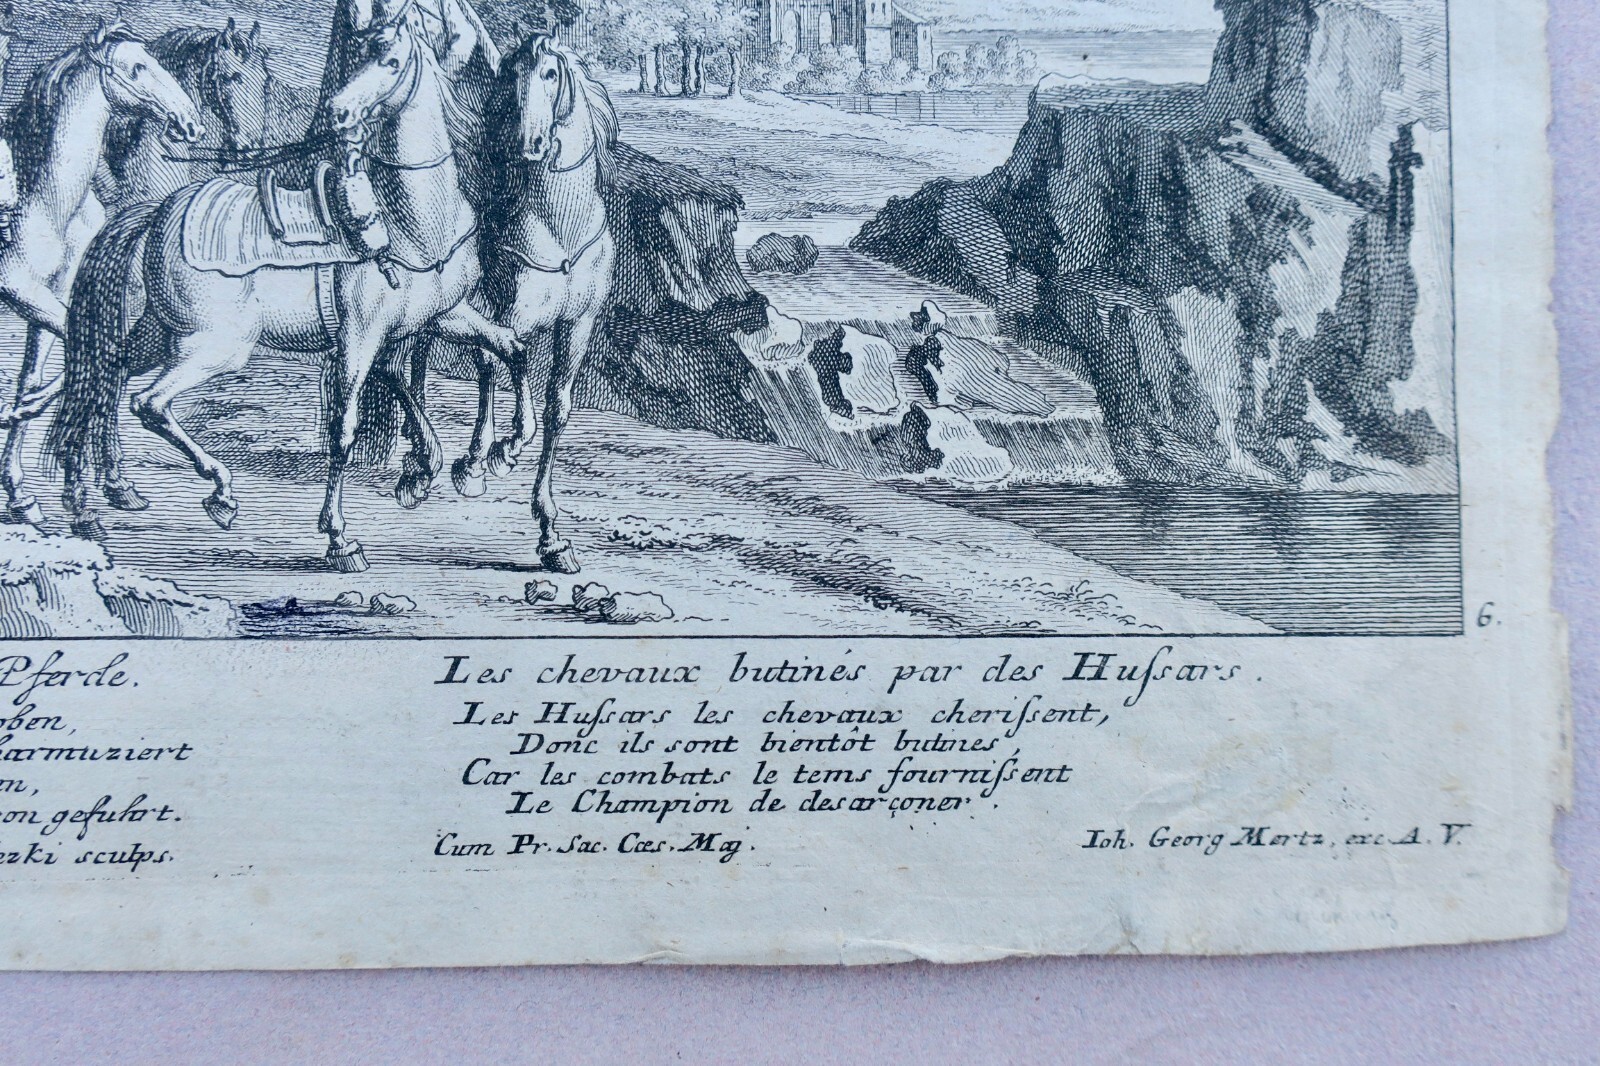 6.
Pferde.
oben,
harmuziert
en,
von gefuhrt.
ezki sculps.
Les chevaux butinés par des Huſsars.
Les Huſsars les chevaux cheriſsent,
Donc ils sont bientôt butines,
Car les combats le tems fourniſsent
Le Champion de desarçoner.
Cum Pr. Sac. Cæs. Maj.
Ioh. Georg Mertz, exc. A. V.